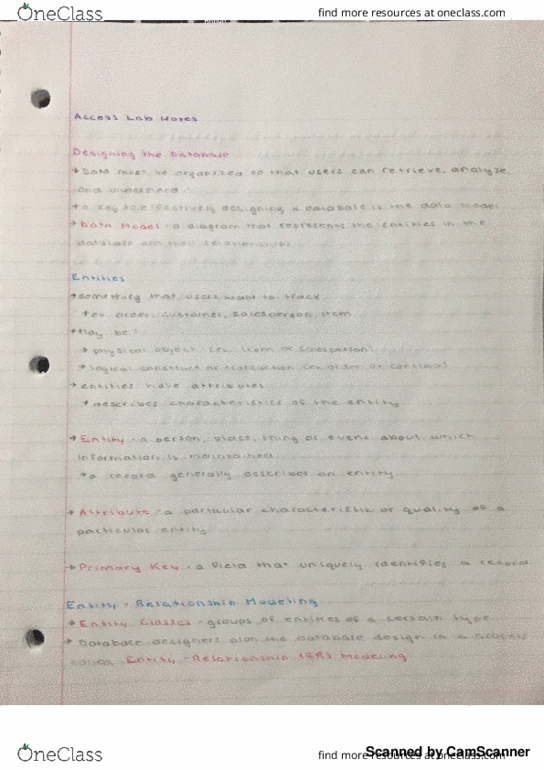 OneClass
find more resources at oneclass.com
Access Lab Notes
Designing the Database
→ Data must be organized so that users can retrieve, analyze
and understand it
→ a key to effectively designing a database is the data model
→ Data Model - a diagram that represents the entities in the
database and their relationships
Entities
→ something that users want to track
→ ex. order, customer, salesperson, item
→ May be:
→ physical object (ex. item or salesperson)
→ logical construct or transaction (ex. order or contract)
→ entities have attributes
→ describes characteristics of the entity
→ Entity - a person, place, thing or event about which
information is maintained
→ a record generally describes an entity
→ Attribute - a particular characteristic or quality of a
particular entity
→ Primary Key - a field that uniquely identifies a record
Entity - Relationship Modeling
→ Entity Classes - groups of entities of a certain type
→ Database designers plan the database design in a process
called Entity - Relationship (ER) Modeling
OneClass
find more resources at oneclass.com
Scanned by CamScanner